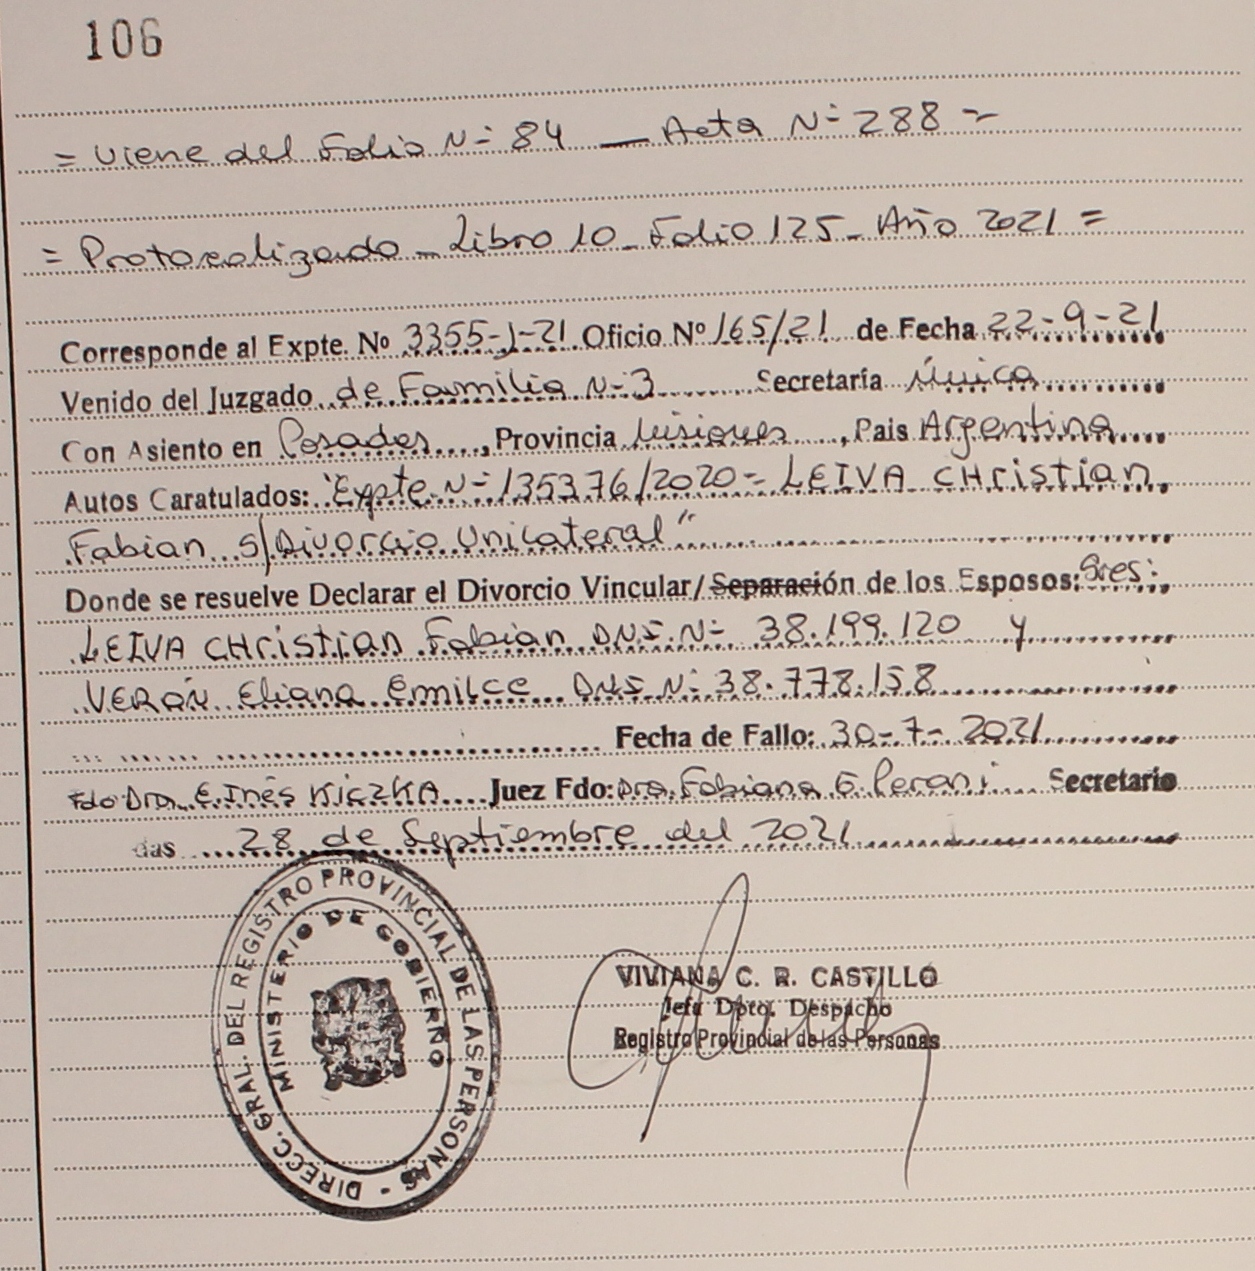 106
= Viene del Folio Nº 84 — Acta Nº 288 =
= Protocolizado - Libro 10 - Folio 125 - Año 2021 =
Corresponde al Expte. Nº 3355-J-21 Oficio Nº 165/21 de Fecha 22-9-21
Venido del Juzgado de Familia Nº 3 Secretaría Única
Con Asiento en Posadas, Provincia Misiones, Pais Argentina
Autos Caratulados: "Expte Nº 135376/2020 - LEIVA CHristian
Fabian s/Divorcio Unilateral"
Donde se resuelve Declarar el Divorcio Vincular/Separación de los Esposos: Sres:
LEIVA CHristian Fabian DNI Nº 38.199.120 y
VERÓN Eliana Emilce DNI Nº 38.778.158
Fecha de Fallo: 30-7-2021
Fdo Dra. E. Inés KICZKA Juez Fdo: Dra. Fabiana G. Perani Secretario
das 28 de Septiembre del 2021
DIRECC. GRAL. DEL REGISTRO PROVINCIAL DE LAS PERSONAS -
MINISTERIO DE GOBIERNO
VIVIANA C. R. CASTILLO
Jefa Dpto. Despacho
Registro Provincial de las Personas